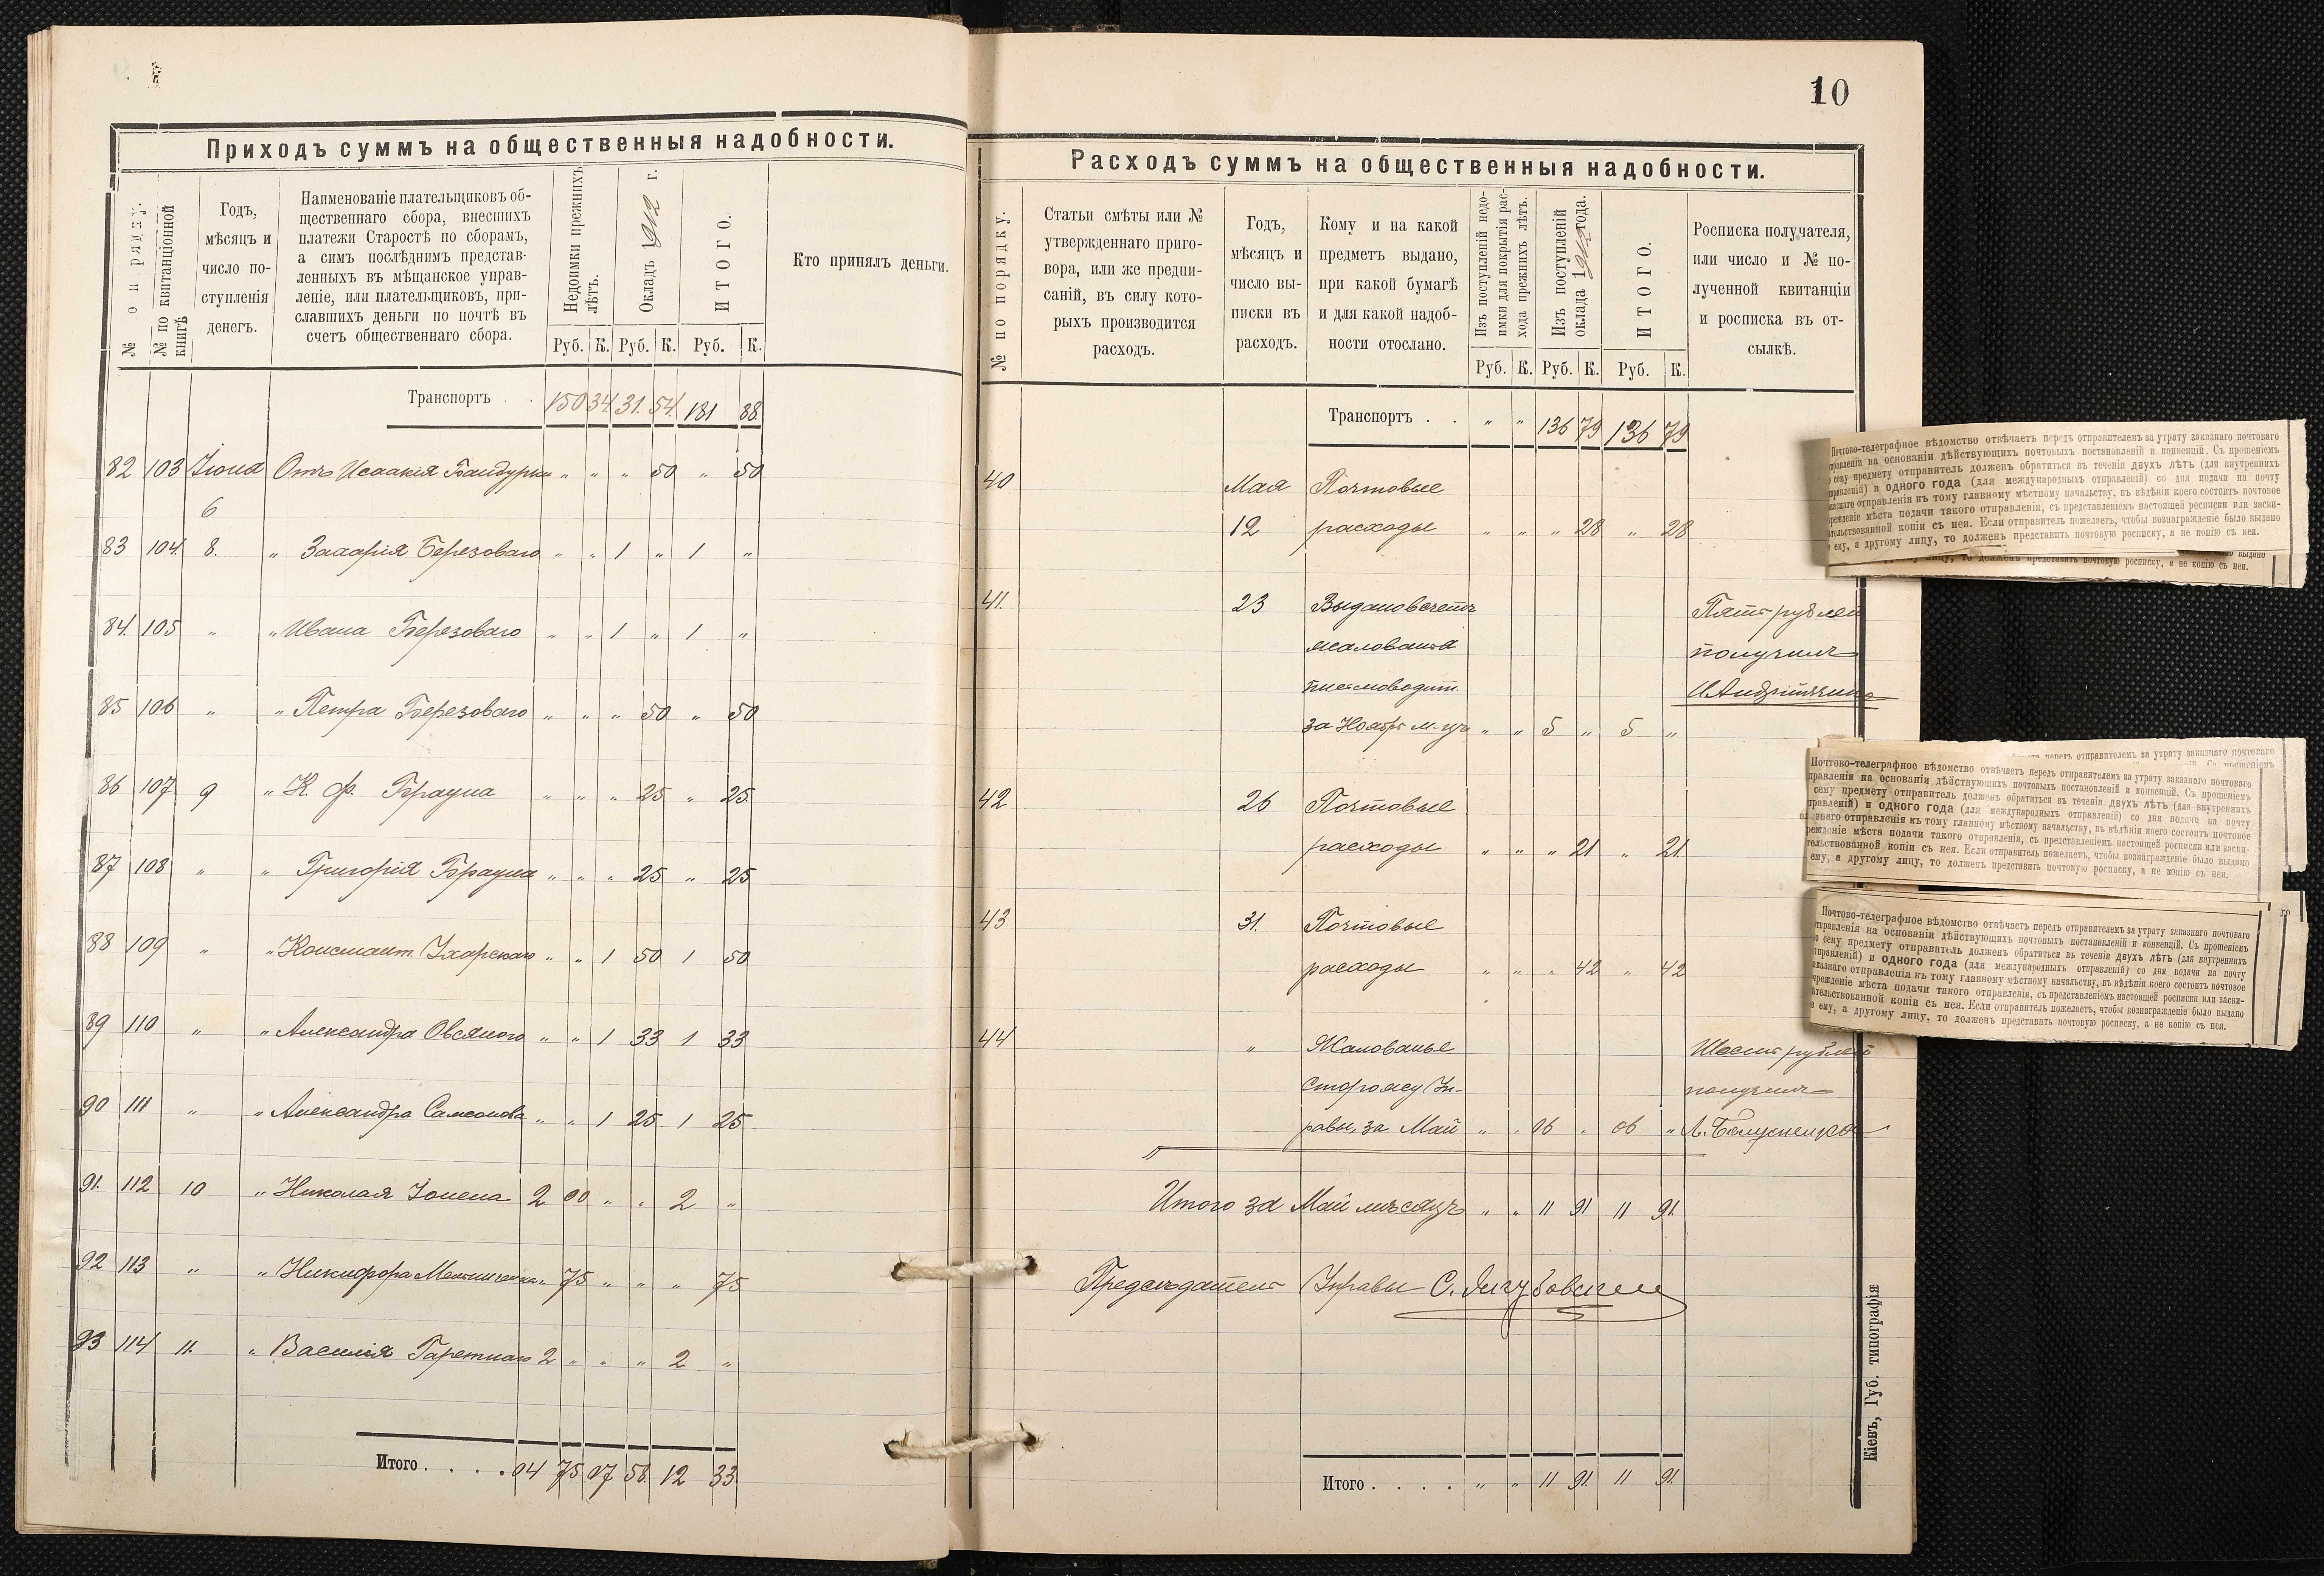 Приходъ суммъ на общественныя надобности.
№ по порядку.
№ по квитанціонной книгѣ
Годъ,
мѣсяцъ и
число по-
ступленія
денегъ.
Наименованіе плательщиковъ об-
щественнаго сбора, внесшихъ
платежи Старостѣ по сборамъ,
а симъ послѣднимъ представ-
ленныхъ въ мѣщанское управ-
леніе, или плательщиковъ, при-
славшихъ деньги по почтѣ въ
счетъ общественнаго сбора.
Недоимки прежнихъ
лѣтъ.
Окладъ 1912 г.
ИТОГО.
Кто принялъ деньги.
Руб. К. Руб. К. Руб. К.
Транспортъ . . 150 34 31. 54. 181 88.
82 103 Іюня Отъ Исаакія Бандурки " " " 50 " 50
6
83 104. 8. " Захарія Березоваго " " 1 " 1 "
84. 105 " " Ивана Березоваго " " 1 " 1 "
85 106 " " Петра Березоваго " " " 50 " 50
86 107 9 " К. Ф. Брауна " " " 25 " 25.
87 108 " " Григорія Брауна " " " 25 " 25
88 109 " " Константи. " " 1 50 1 50
89 110 " " Александра Овсяного " " 1 33 1 33
90 111 " " Александра Самсонова " " 1 25 1 25
91. 112 10 " Николая 2 00 " " 2 "
92 113 " " Никифора " 75 " " " 75
93 114 11. " Василія 2 " " " 2 "
Итого . . . . 04 75 07 58. 12 33
10
Расходъ суммъ на общественныя надобности.
№ по порядку.
Статьи смѣты или №
утвержденнаго приго-
вора, или же предпи-
саній, въ силу кото-
рыхъ производится
расходъ.
Годъ,
мѣсяцъ и
число вы-
писки въ
расходъ.
Кому и на какой
предметъ выдано,
при какой бумагѣ
и для какой надоб-
ности отослано.
Изъ поступленій недо-
имки для покрытія рас-
хода прежнихъ лѣтъ.
Изъ поступленій
оклада 1912 года.
ИТОГО.
Росписка получателя,
или число и № по-
лученной квитанціи
и росписка въ от-
сылкѣ.
Руб. К. Руб. К. Руб. К.
Транспортъ . . " " 136 79 136 79
40 Мая Почтовые
12 расходы " " " 28 " 28
41. 23 Выдано въ счетъ Пять рублей
жалованья получилъ
писмоводит.
за Ноябрь м-цъ " " 5 " 5 "
42 26 Почтовые
расходы " " " 21 " 21.
43 31. Почтовые
расходы " " " 42 " 42
44 " Жалованье Шесть рублей
Сторожу Уп- получилъ
равы, за Май " " 06 " 06 "
Итого за Май мѣсяцъ " " 11 91 11 91.
Предсѣдатель Управы
Итого . . . . " " 11 91. 11 91.
Кіевъ, Губ. типографія
Почтово-телеграфное вѣдомство отвѣчаетъ передъ отправителемъ за утрату заказнаго почтоваго
правленія на основаніи дѣйствующихъ почтовыхъ постановленій и конвенцій. Съ прошеніемъ
сему предмету отправитель долженъ обратиться въ теченіи двухъ лѣтъ (для внутреннихъ
правленій) и одного года (для международныхъ отправленій) со дня подачи на почту
заказнаго отправленія къ тому главному мѣстному начальству, въ вѣдѣніи коего состоитъ почтовое
реждение мѣста подачи такого отправленія, съ представленіемъ настоящей росписки или засви-
тельствованной копіи съ нея. Если отправитель пожелаетъ, чтобы вознагражденіе было выдано
ему, а другому лицу, то долженъ представить почтовую росписку, а не копію съ нея.
лицу, то долженъ представить почтовую росписку, а не копію съ нея.
передъ отправителемъ за утрату заказнаго почтоваго
Почтово-телеграфное вѣдомство отвѣчаетъ передъ отправителемъ за утрату заказнаго почтоваго
правленія на основаніи дѣйствующихъ почтовыхъ постановленій и конвенцій. Съ прошеніемъ
сему предмету отправитель долженъ обратиться въ теченіи двухъ лѣтъ (для внутреннихъ
правленій) и одного года (для международныхъ отправленій) со дня подачи на почту
казнаго отправленія къ тому главному мѣстному начальству, въ вѣдѣніи коего состоитъ почтовое
режденіе мѣста подачи такого отправленія, съ представленіемъ настоящей росписки или засви-
тельствованной копіи съ нея. Если отправитель пожелаетъ, чтобы вознагражденіе было выдано
ему, а другому лицу, то долженъ представить почтовую росписку, а не копію съ нея.
Почтово-телеграфное вѣдомство отвѣчаетъ передъ отправителемъ за утрату заказнаго почтоваго
тправленія на основаніи дѣйствующихъ почтовыхъ постановленій и конвенцій. Съ прошеніемъ
о сему предмету отправитель долженъ обратиться въ теченіи двухъ лѣтъ (для внутреннихъ
тправленій) и одного года (для международныхъ отправленій) со дня подачи на почту
аказнаго отправленія къ тому главному мѣстному начальству, въ вѣдѣніи коего состоитъ почтовое
чрежденіе мѣста подачи такого отправленія, съ представленіемъ настоящей росписки или засви-
ѣтельствованной копіи съ нея. Если отправитель пожелаетъ, чтобы вознагражденіе было выдано
е ему, а другому лицу, то долженъ представить почтовую росписку, а не копію съ нея.